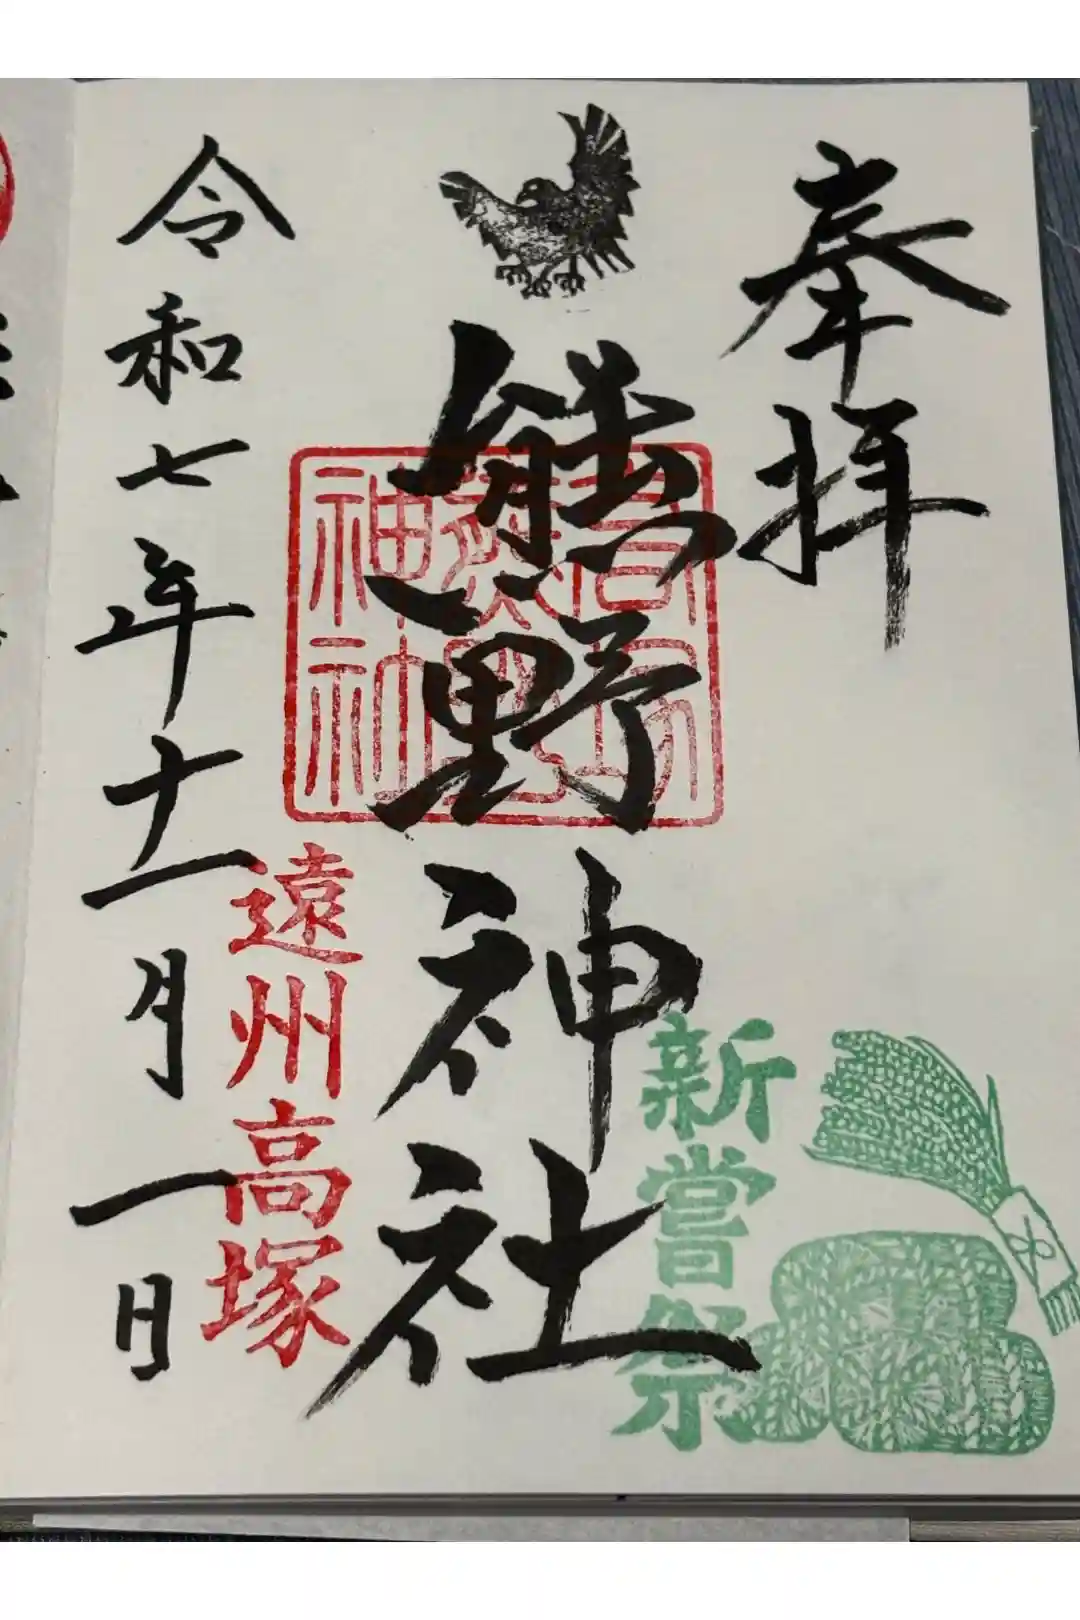 奉拝
熊野神社
高塚
熊野
神社
新嘗祭
遠州高塚
令和七年十一月一日